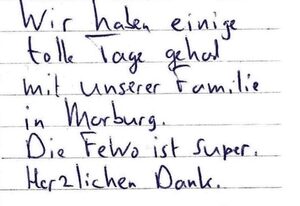 Wir haben einige
tolle Tage gehad
mit unserer Familie
in Marburg.
Die FeWo ist super.
Herzlichen Dank.